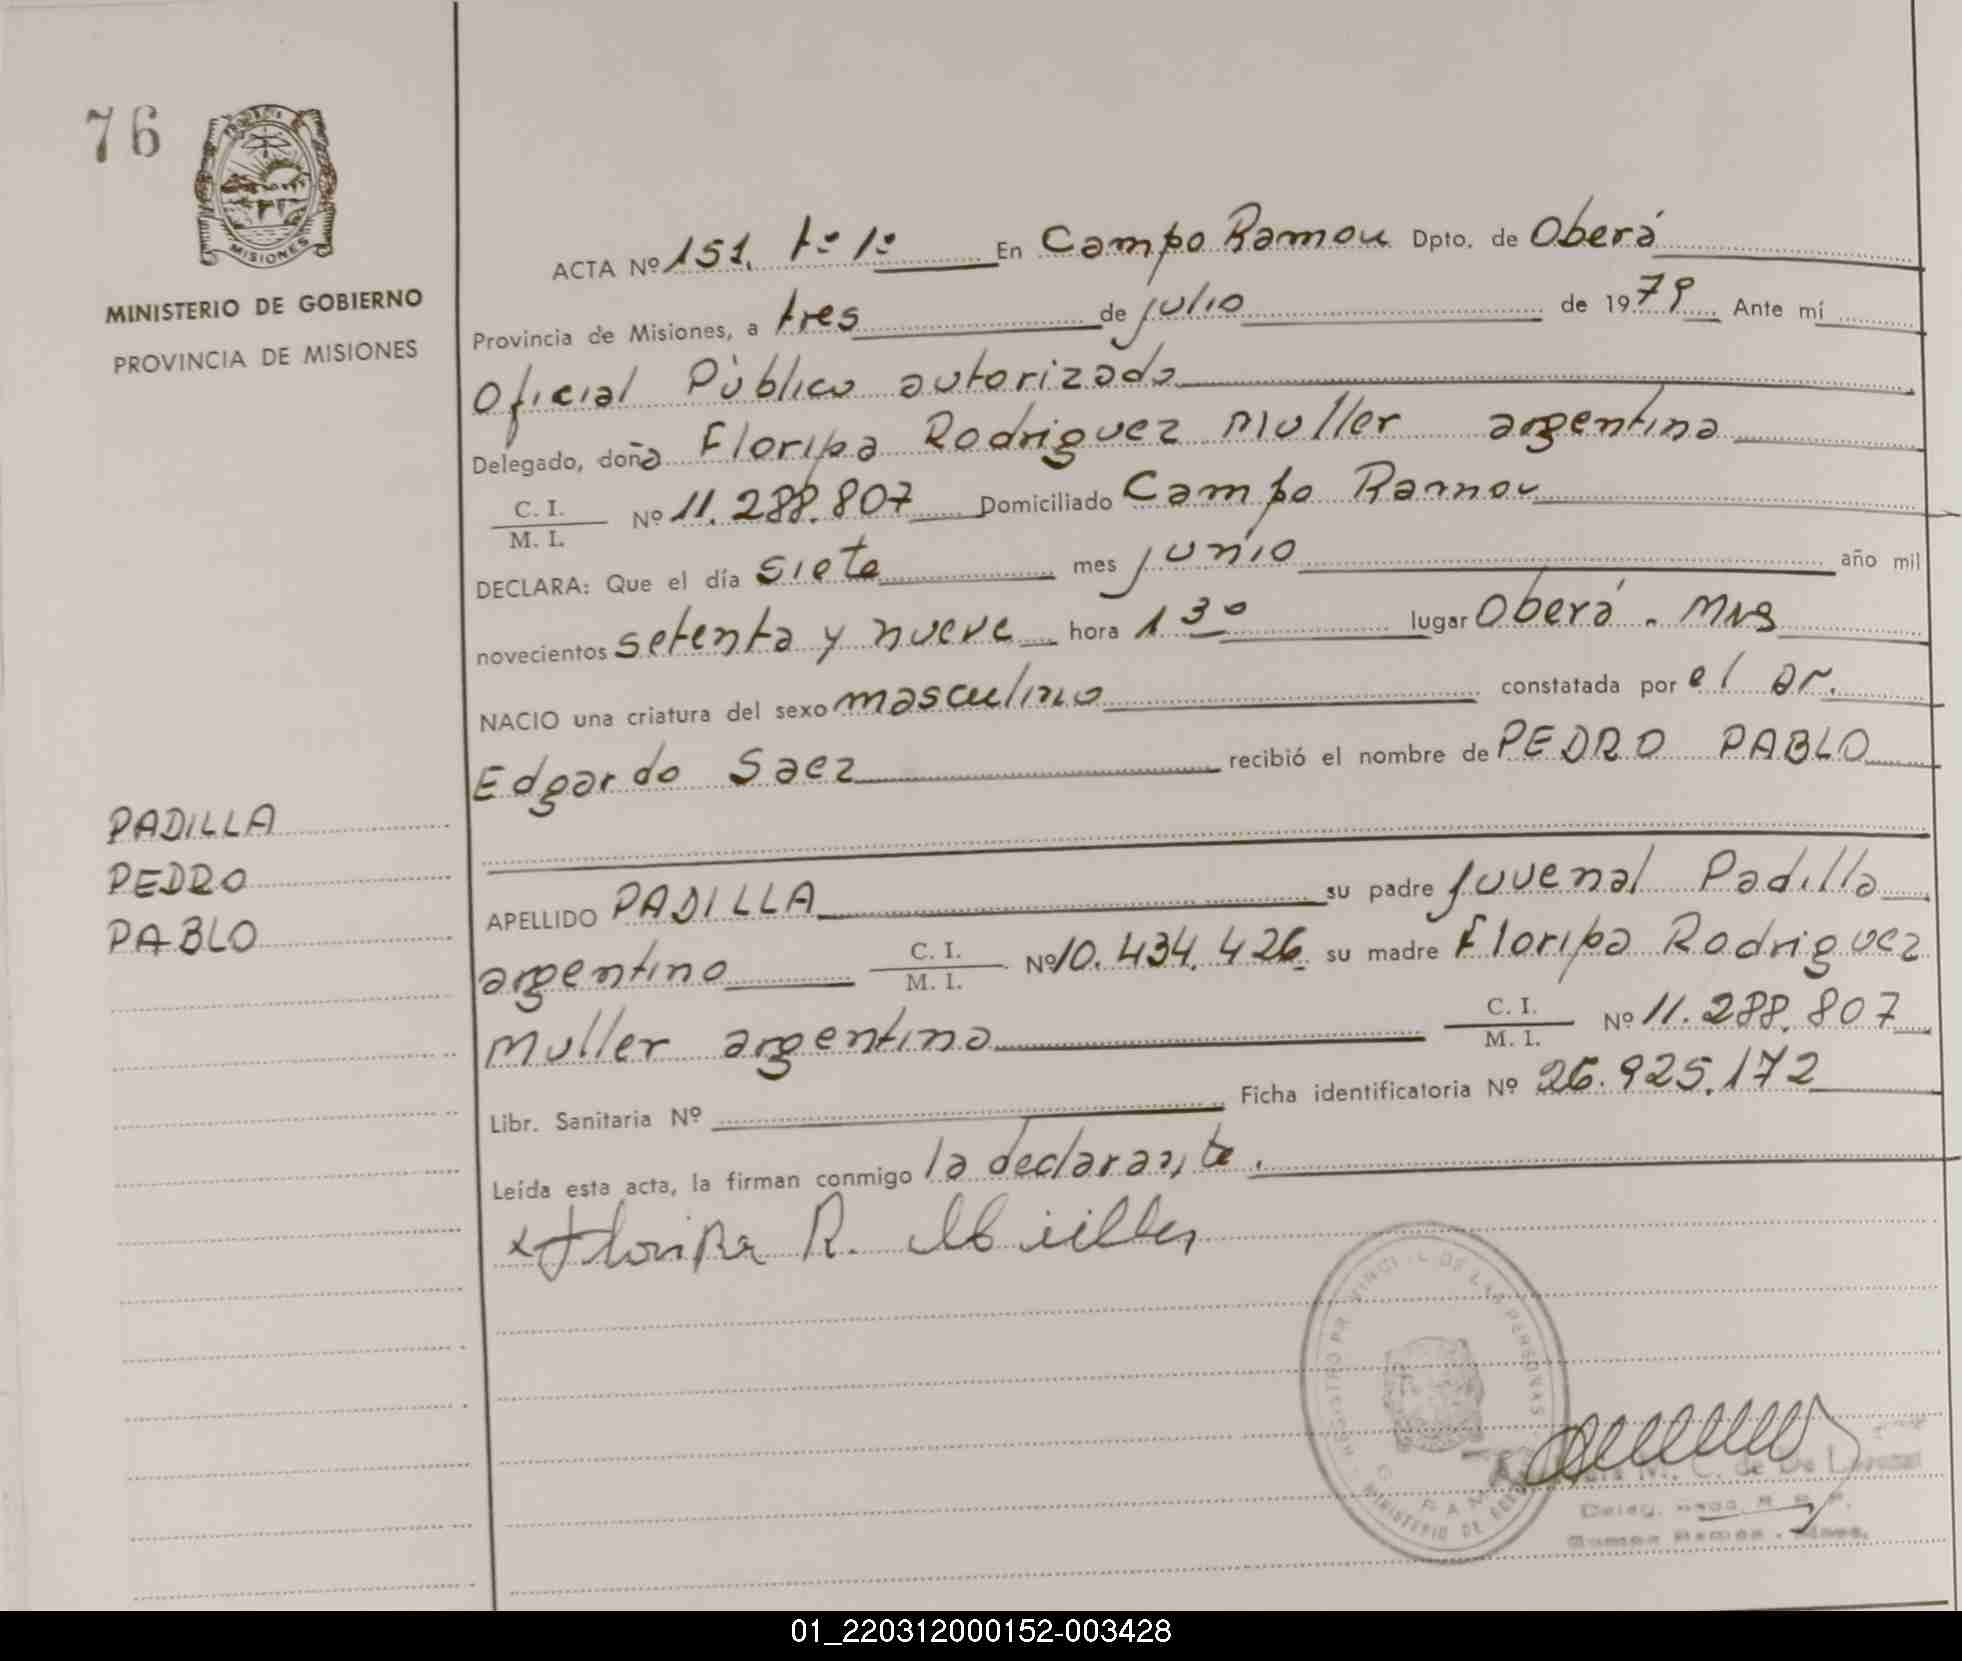 76
PROVINCIA
MISIONES
MINISTERIO DE GOBIERNO
PROVINCIA DE MISIONES
ACTA Nº 151. tº 1º En Campo Ramou Dpto. de Oberá
Provincia de Misiones, a tres de julio de 1979 Ante mí
Oficial Público autorizado
Delegado, doña Floripa Rodriguez Muller argentina
C. I.
M. I. Nº 11.288.807 Domiciliado Campo Ramou
DECLARA: Que el día siete mes junio año mil
novecientos setenta y nueve hora 13º lugar Oberá . Mns
NACIO una criatura del sexo masculino constatada por el Dr.
Edgardo Saez recibió el nombre de PEDRO PABLO
PADILLA
PEDRO
PABLO
APELLIDO PADILLA su padre Juvenal Padilla
argentino C. I.
M. I. Nº 10.434.426 su madre Floripa Rodriguez
Muller argentina C. I.
M. I. Nº 11.288.807
Libr. Sanitaria Nº Ficha identificatoria Nº 26.925.172
Leída esta acta, la firman conmigo la declarante.
x Floripa R. Müller
REGISTRO PROVINCIAL DE LAS PERSONAS
MINISTERIO DE
C. de De
01_220312000152-003428